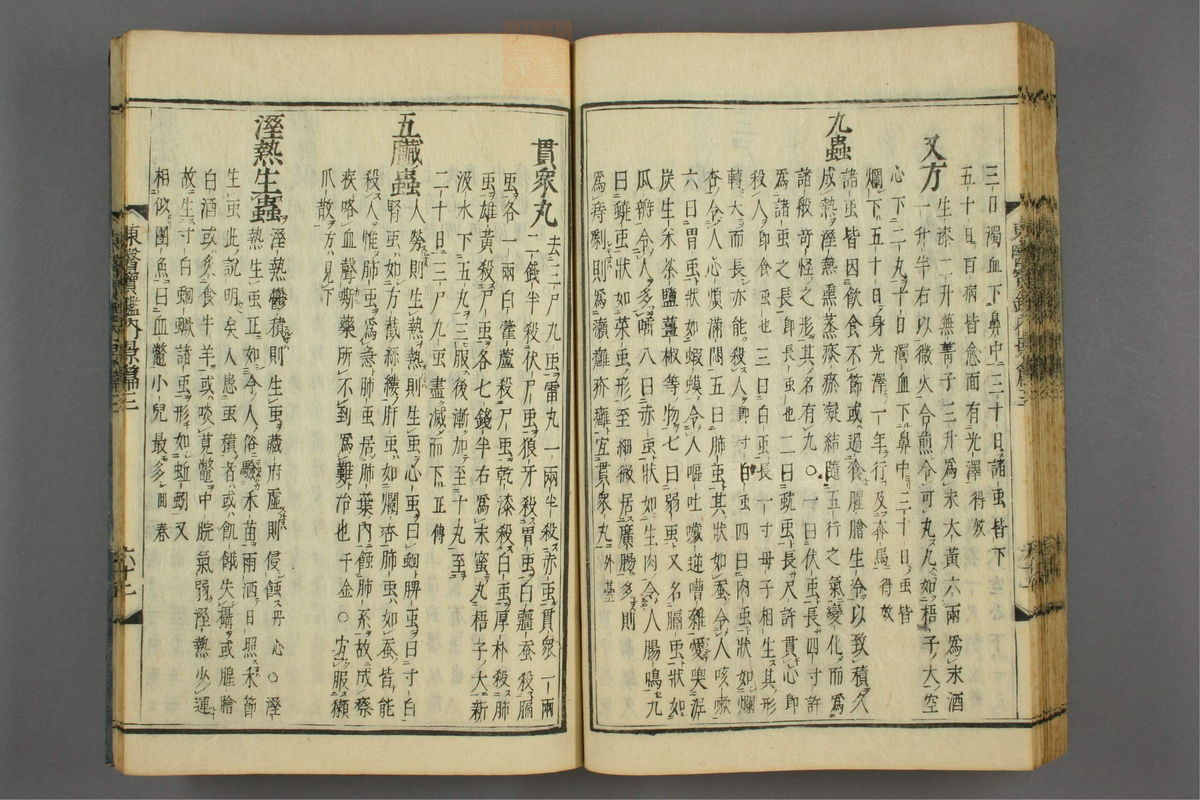 三日濁血下鼻中三十日諸虫皆下
五十日百病皆愈面有光澤得效
又方 生漆一升蕪菁子三升爲末大黃六兩爲末酒
一升半右以微火合煎令可丸丸如梧子大空
心下二丸十日濁血下鼻中二十日虫皆
爛下五十日身光澤一年行及奔馬得效
九蟲 諸虫皆因飮食不節或過食腥膾生冷以致積久
成熱濕熱熏蒸痰瘀凝結隨五行之氣變化而爲
諸般奇怪之形其名有九〇一曰伏虫長四寸許
爲諸虫之長卽長虫也二曰蚘虫長尺許貫心卽
殺人卽食虫也三曰白虫長一寸母子相生其形
轉大而長亦能殺人卽寸白虫四曰肉虫狀如爛
杏令人心煩滿悶五曰肺虫其狀如蚕令人咳嗽
六曰胃虫狀如蝦蟆令人嘔吐噦逆嘈雜愛喫泥
炭生米茶鹽薑椒等物七曰弱虫又名膈虫狀如
瓜瓣令人多唾八曰赤虫狀如生肉令人腸鳴九
曰蟯虫狀如菜虫形至細微居廣腸多則
爲痔劇則爲癩癰疥癬宜貫衆丸外臺
貫衆丸 去三尸九虫雷丸一兩半殺赤虫貫衆一兩
二錢半殺伏尸虫狼牙殺胃虫白蘿蚕殺膈
虫各一兩白藿蘆殺尺虫乾漆殺白虫厚朴殺肺
虫雄黃殺尸虫各七錢半右爲末蜜丸梧子大新
汲水下五丸三服後漸加至十丸至
二十日三尸九虫盡滅而下正傳
五臟蟲 人勞則生熱熱則生虫心虫曰蛔脾虫曰寸白
腎虫如方截絲縷肝虫如爛杏肺虫如蚕皆能
殺人惟肺虫爲急肺虫居肺葉內蝕肺系故成瘵
疾咯血聲嘶藥所不到爲難治也千金〇宜服獺
爪散方見下
濕熱生蟲 濕熱鬱積則生虫臟府虛則侵蝕丹心〇濕
熱生虫正如今人俗驗禾苗雨酒日照禾節
生虫此說明矣人患虫積者或飢餓失攝或腥膾
白酒或炙食牛羊或啖莧鱉中脘氣弱濕熱少運
故生寸白蛔蠍諸虫形如蚯蚓又
相似團魚曰血鱉小兒最多回春
東醫寶鑑內景篇三 六十二